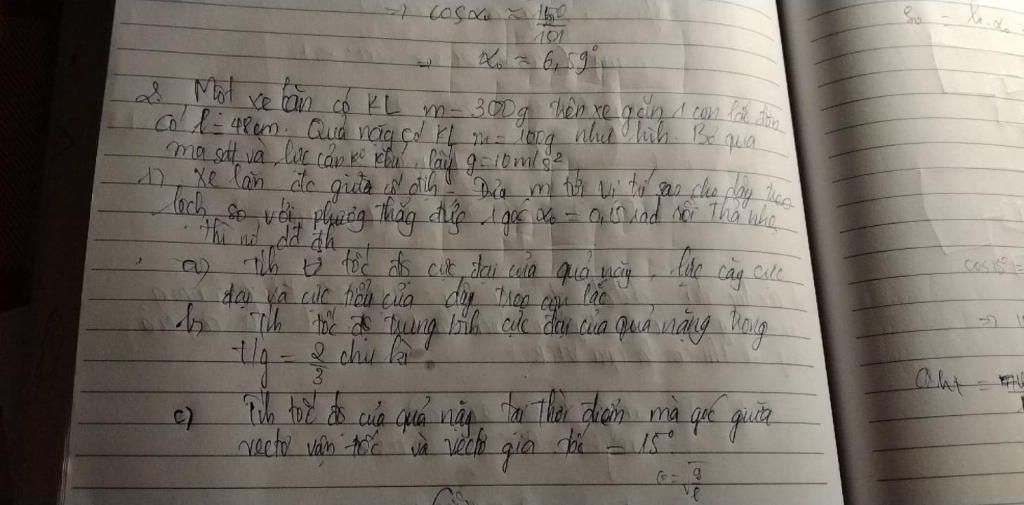 => cosα₀ ≈ 150/151
=> α₀ ≈ 6,59°
S₀ = l.α₀
2, Một xe lăn có KL m = 300g trên xe gắn 1 con lắc đơn
có l = 48cm. Quả nặng có KL m = 100g như hình. Bỏ qua
ma sát và lực cản k² khí, lấy g = 10m/s²
1) Xe lăn đc giữ cố định. Đưa m tới vị trí sao cho dây treo
lệch so với phương thẳg đứg 1 góc α₀ = 0,15 rad rồi thả nhẹ
thì nó dđ đh
a) Tíh tốc độ cực đại của quả nặg, lực căg cực
đại và cực tiểu của dây treo con lắc
b) Tíh tốc độ trung bìh cực đại của quả nặng trong
t/g = 2/3 chu kì.
c) Tíh tốc độ của quả nặg tại thời điểm mà góc giữa
vectơ vận tốc và vectơ gia tốc = 15°
ω = √g/l
cos15° =
=>
aht =